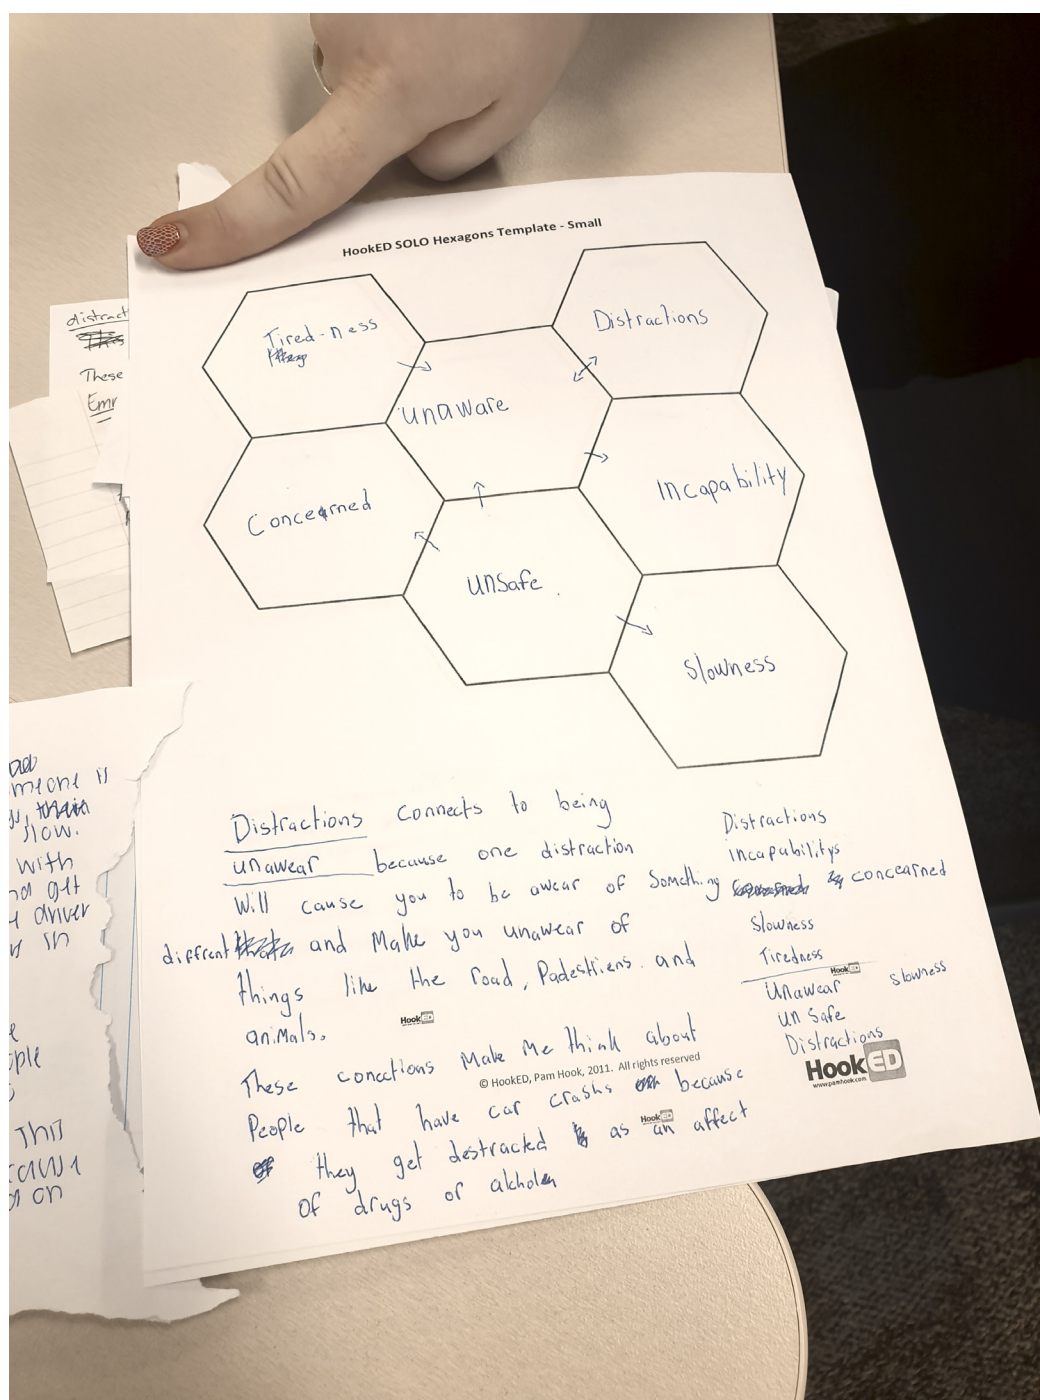 HookED SOLO Hexagons Template - Small
Tired-ness
Distractions
unaware
Concearned
Incapability
unsafe
Slowness
distract
These
Emr
Distractions connects to being
unawear because one distraction
Will cause you to be awear of Something
diffrent and Make you unawear of
things like the road, Padestriens and
animals.
These conections Make Me think about
People that have car crashs because
they get destracted as an affect
of drugs or
Distractions
incapabilitys
concearned
Slowness
Tiredness
Unawear
slowness
un Safe
Distractions
HookED
HookED
HookED
© HookED, Pam Hook, 2011. All rights reserved
HookED
www.pamhook.com
meone is
slow.
with
nd get
driver
in
ple
This
cause
on